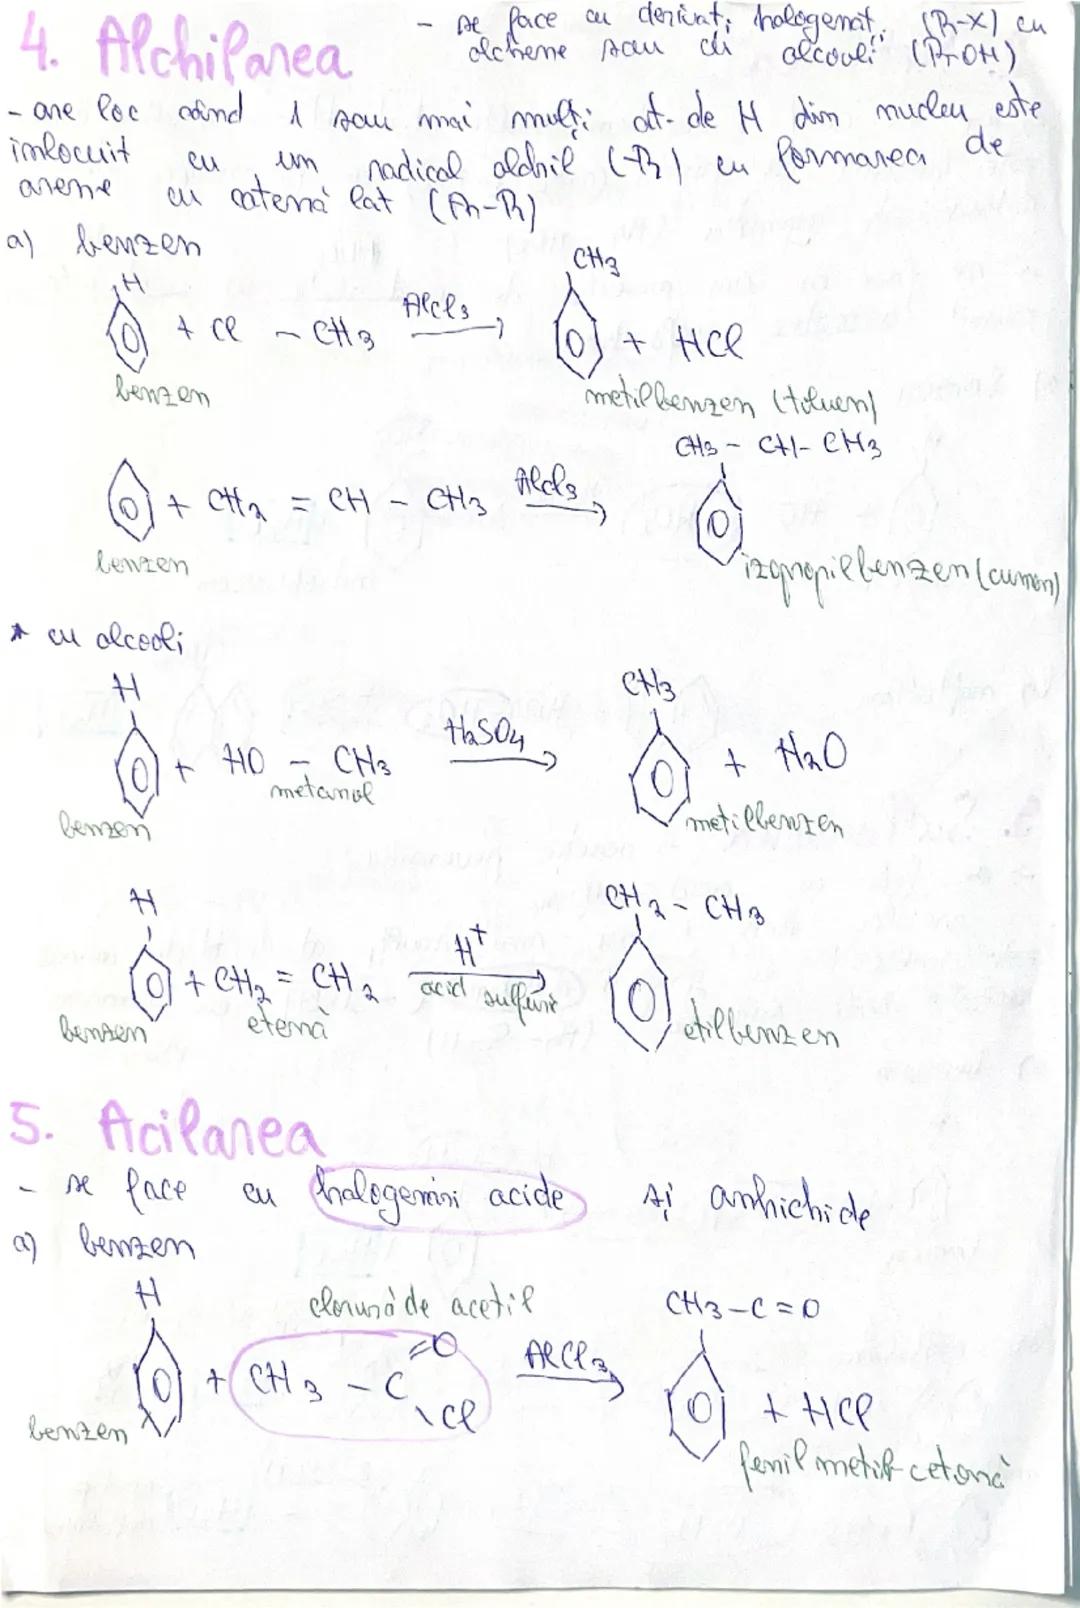 4. Alchilarea
- se face cu derivați halogenați (R-X) cu
alchene sau cu alcooli (R-OH)
- are loc când 1 sau mai mulți at. de H din nucleu este
înlocuit cu un radical alchil (-R) cu formarea de
arene cu catenă lat (Ar-R)
a) benzen
H
+ Cl - CH3 AlCl3 → CH3 + HCl
benzen
metilbenzen (toluen)
CH3 - CH - CH3
+ CH2 = CH - CH3 AlCl3 →
benzen
izopropilbenzen (cumen)
* cu alcooli
H
+ HO - CH3 H2SO4 → CH3 + H2O
metanol
benzen
metilbenzen
H
+ CH2 = CH2 H+ → CH2 - CH3
acid sulfuric
benzen
etenă
etilbenzen
5. Acilarea
- se face cu halogenuri acide și anhidride
a) benzen
H
clorură de acetil
CH3-C=O
+ CH3 - C =O Cl AlCl3 → + HCl
benzen
fenil metil-cetonă